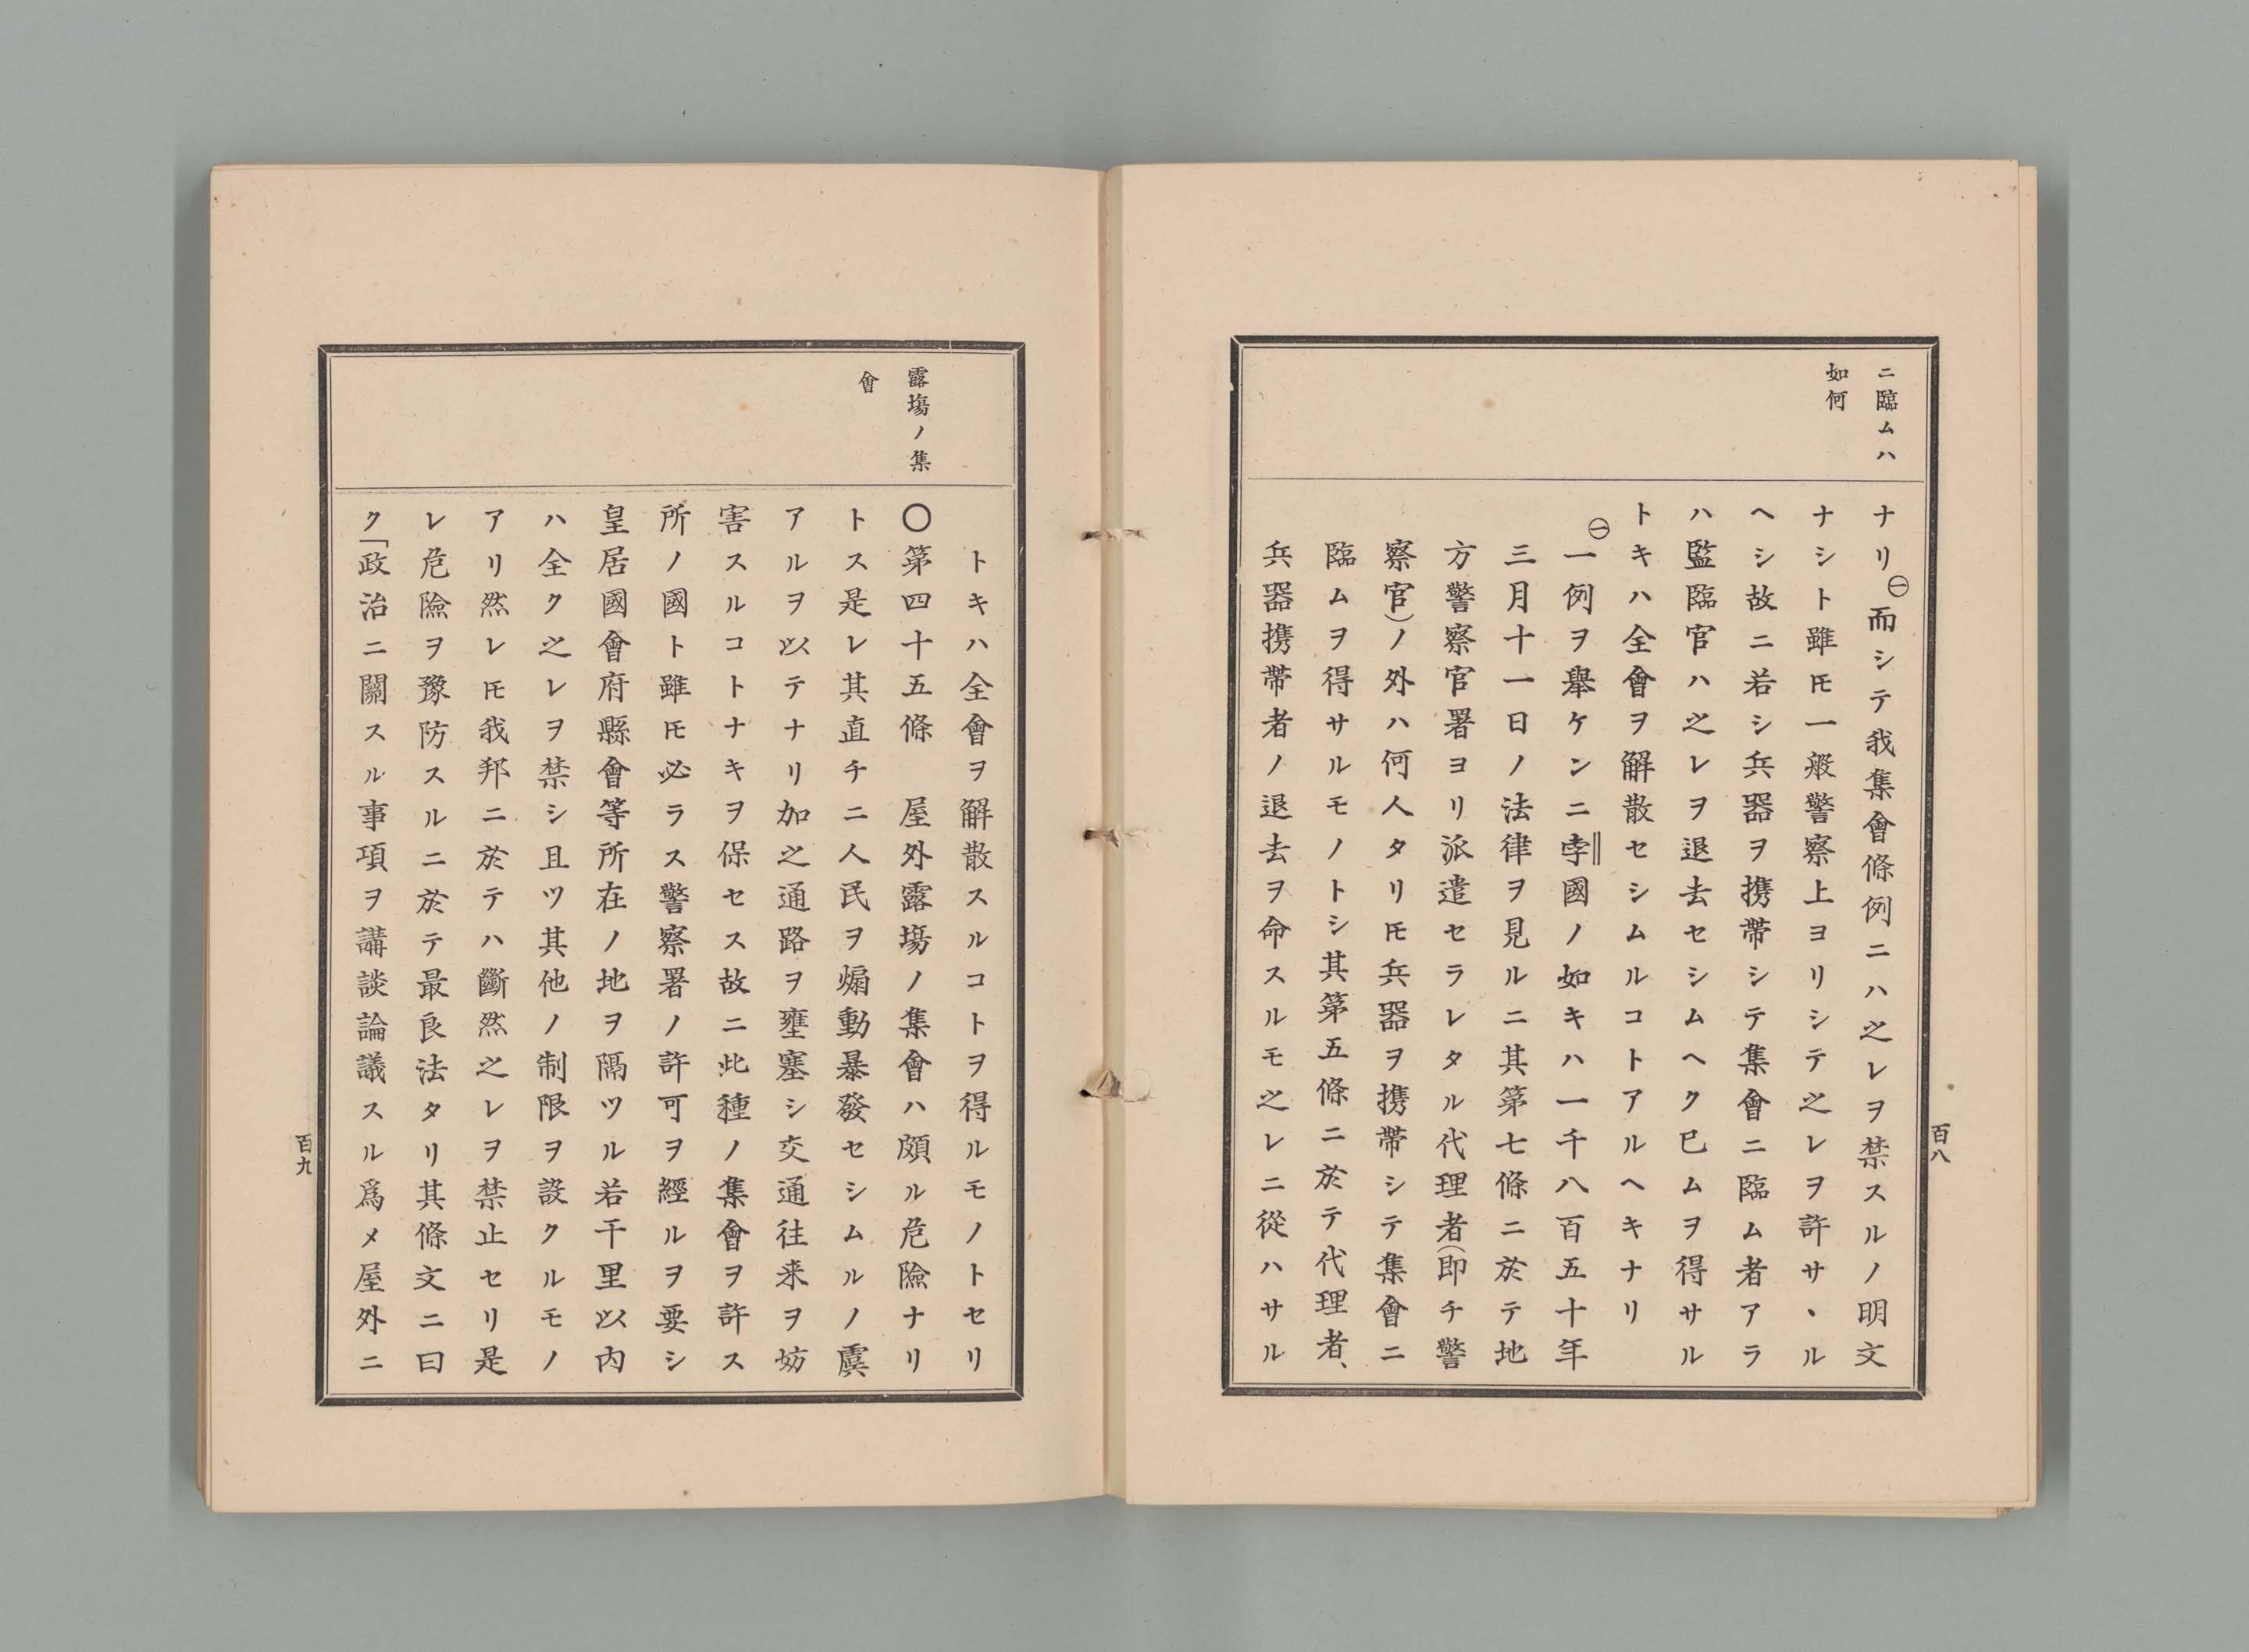 ニ臨ムハ
如何
ナリ㊀而シテ我集會條例ニハ之レヲ禁スルノ明文
ナシト雖𪜈一般警察上ヨリシテ之レヲ許サヽル
ヘシ故ニ若シ兵器ヲ携帶シテ集會ニ臨ム者アラ
ハ監臨官ハ之レヲ退去セシムヘク已ムヲ得サル
トキハ全會ヲ解散セシムルコトアルヘキナリ
㊀一例ヲ擧ケンニ孛國ノ如キハ一千八百五十年
三月十一日ノ法律ヲ見ルニ其第七條ニ於テ地
方警察官署ヨリ派遣セラレタル代理者(即チ警
察官)ノ外ハ何人タリ𪜈兵器ヲ携帶シテ集會ニ
臨ムヲ得サルモノトシ其第五條ニ於テ代理者、
兵器携帶者ノ退去ヲ命スルモ之レニ從ハサル
百八
露塲ノ集
會
トキハ全會ヲ解散スルコトヲ得ルモノトセリ
〇第四十五條　屋外露塲ノ集會ハ頗ル危險ナリ
トス是レ其直チニ人民ヲ煽動暴發セシムルノ虞
アルヲ以テナリ加之通路ヲ壅塞シ交通往来ヲ妨
害スルコトナキヲ保セス故ニ此種ノ集會ヲ許ス
所ノ國ト雖𪜈必ラス警察署ノ許可ヲ經ルヲ要シ
皇居國會府縣會等所在ノ地ヲ隔ツル若干里以内
ハ全ク之レヲ禁シ且ツ其他ノ制限ヲ設クルモノ
アリ然レ𪜈我邦ニ於テハ斷然之レヲ禁止セリ是
レ危險ヲ豫防スルニ於テ最良法タリ其條文ニ曰
ク「政治ニ關スル事項ヲ講談論議スル爲メ屋外ニ
百九